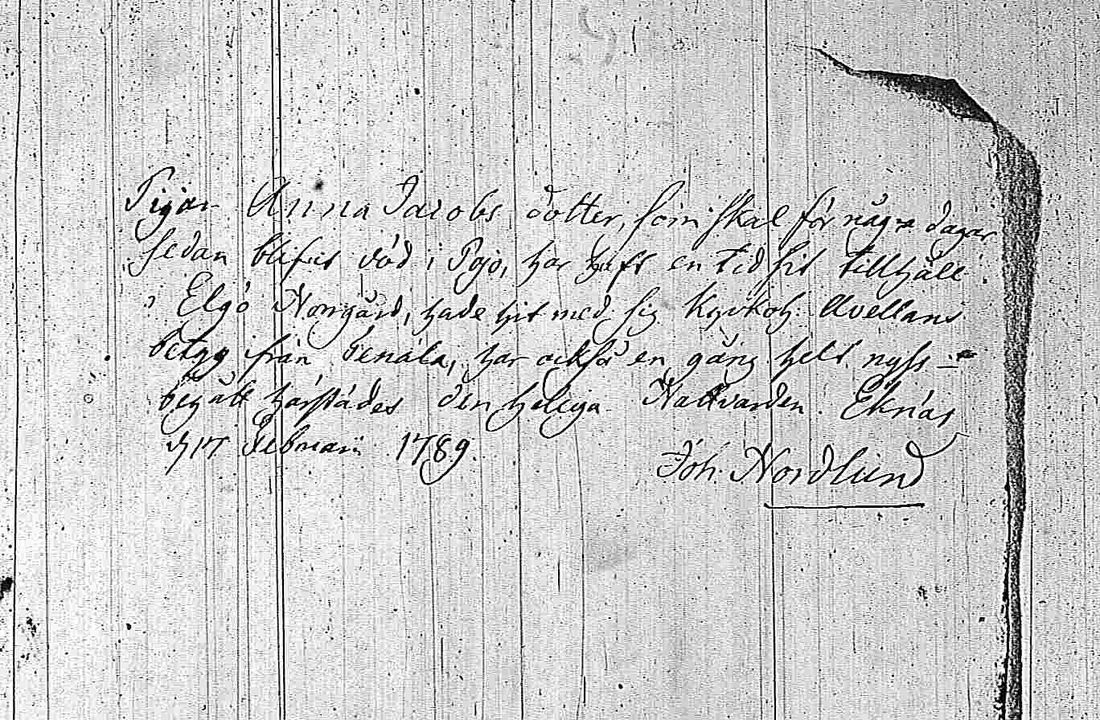 Pigan Anna Jacobs dotter, som skal för några dagar
sedan blifvit död i Pojo, har haft en tid sit tillhåll
i Elgö Norrgård, hade hit med sig Kyrkoh. Avellans
betyg från Tenala, har också en gång helt nyss
begått härstädes den heliga Nattvarden. Eknäs
d 17 Februarii 1789.
Joh. Nordlund